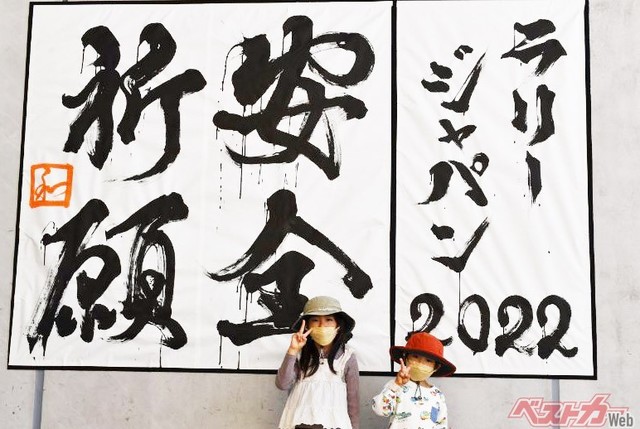 ラリー
ジャパン
2022
安全
祈願
和
ベストカーWeb